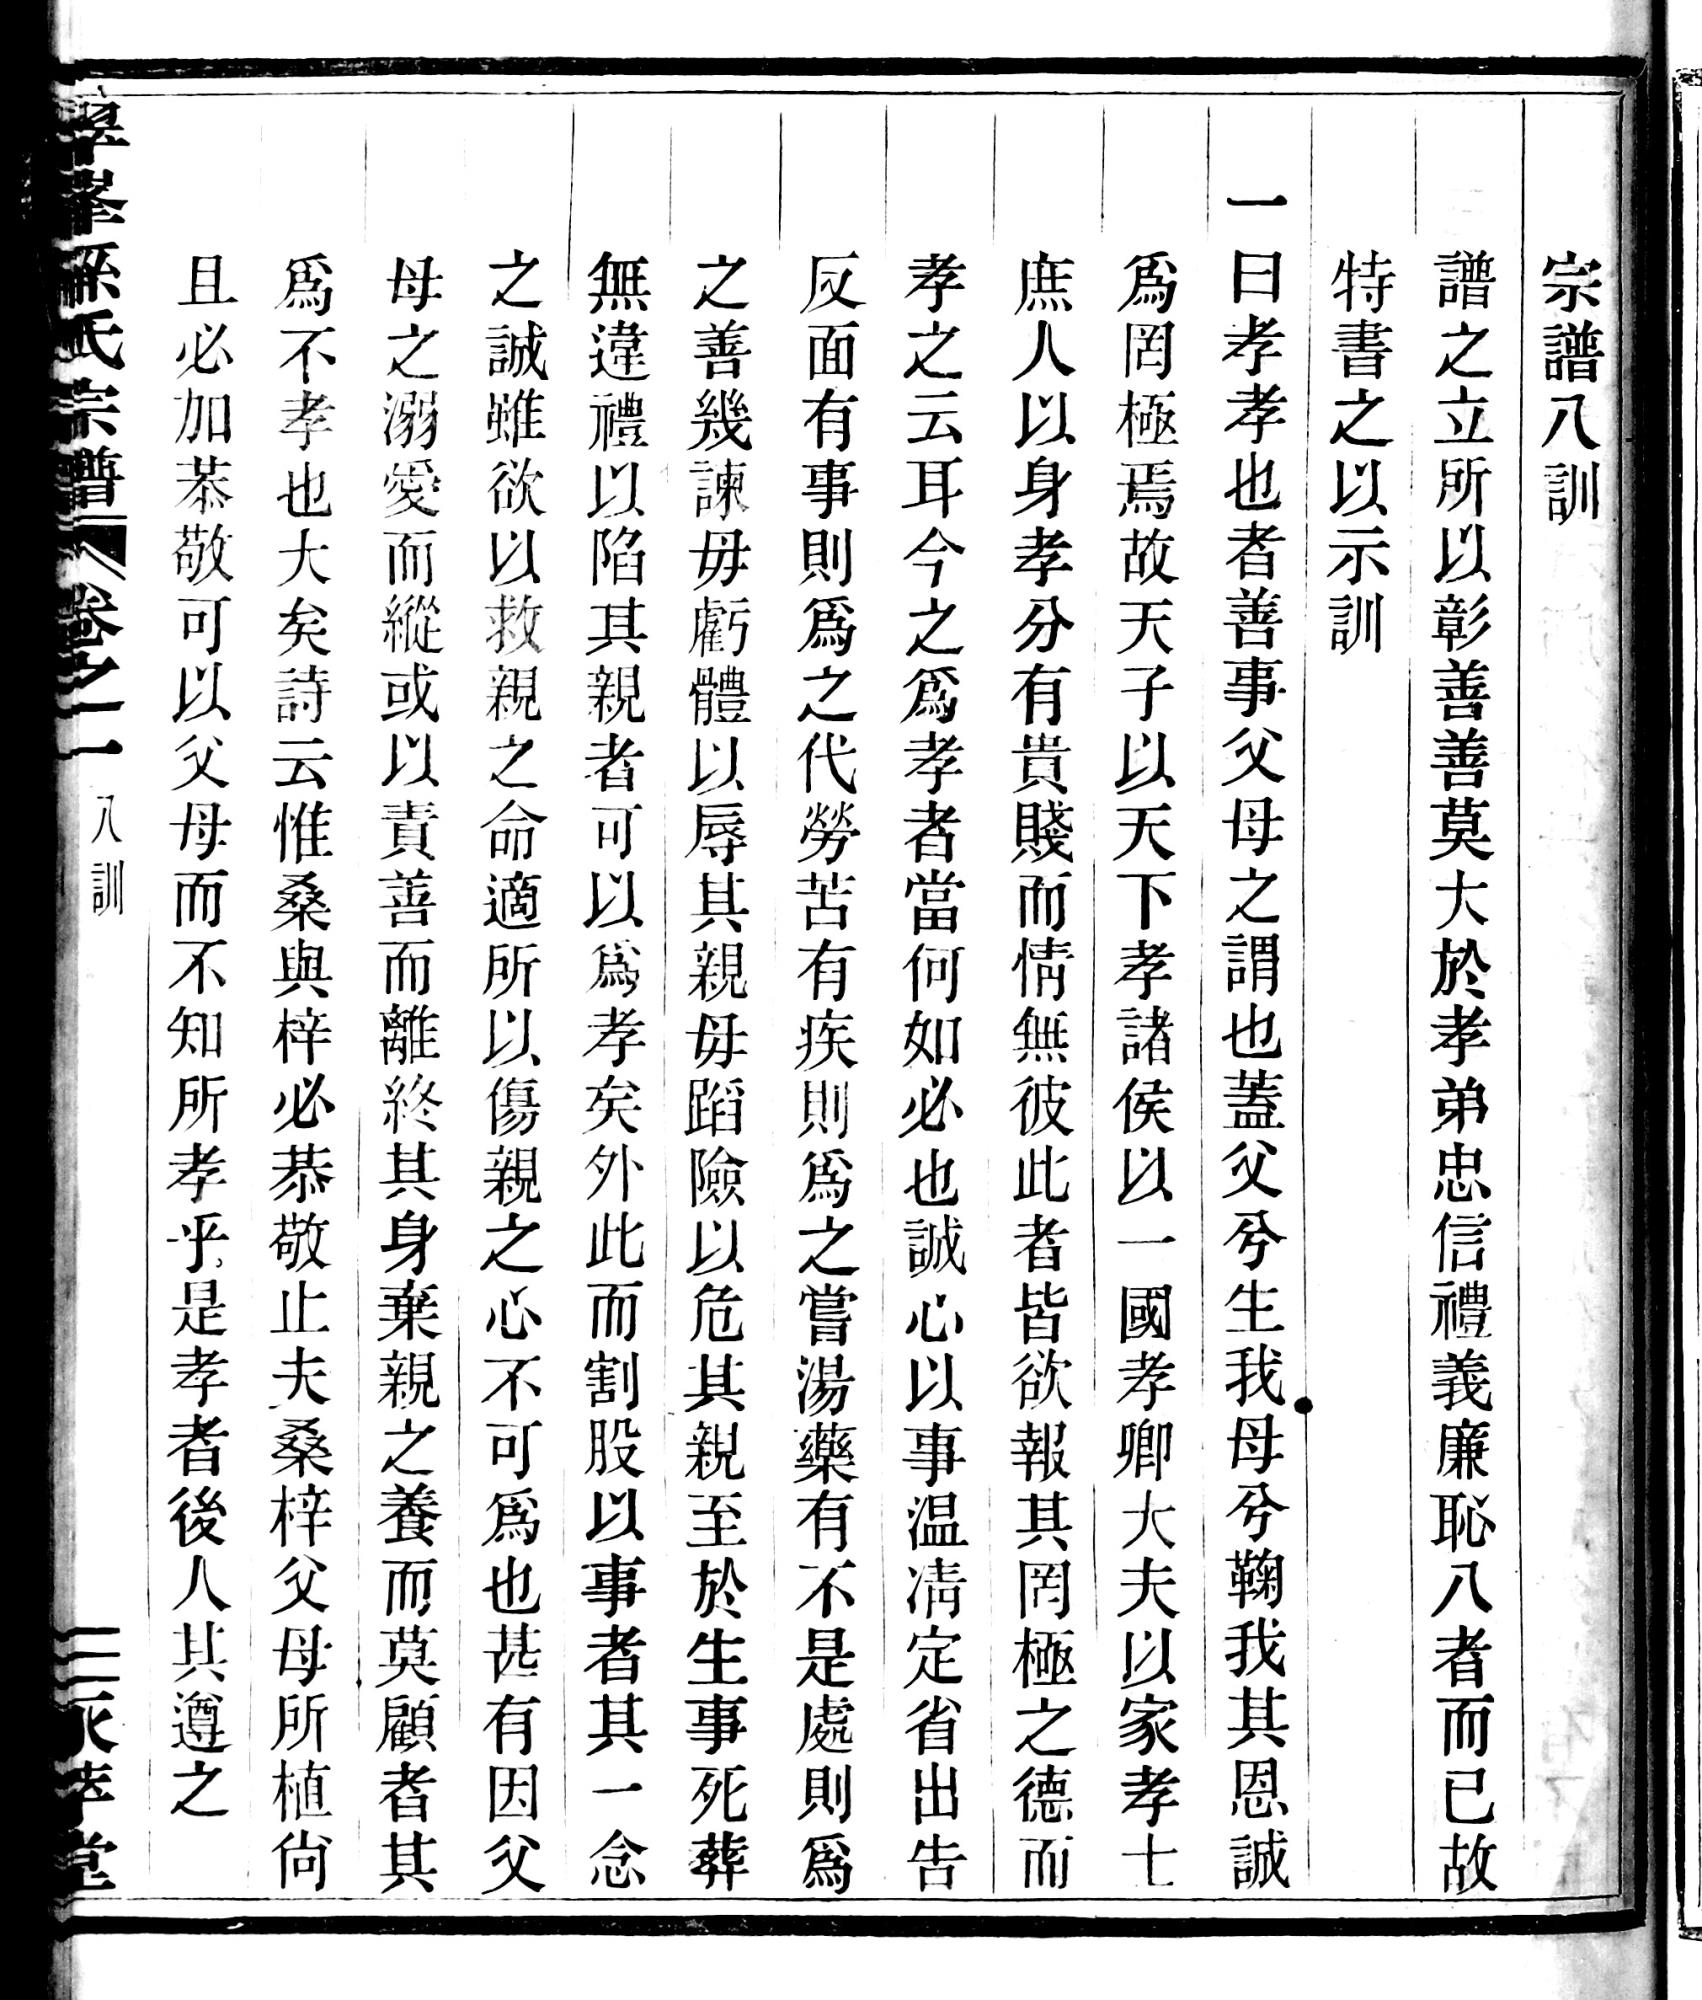 宗譜八訓
譜之立所以彰善善莫大於孝弟忠信禮義廉恥八者而已故
特書之以示訓
一曰孝孝也者善事父母之謂也蓋父兮生我母兮鞠我其恩誠
爲罔極焉故天子以天下孝諸侯以一國孝卿大夫以家孝士
庶人以身孝分有貴賤而情無彼此者皆欲報其罔極之德而
孝之云耳今之爲孝者當何如必也誠心以事温凊定省出告
反面有事則爲之代勞苦有疾則爲之嘗湯藥有不是處則爲
之善幾諫毋虧體以辱其親毋蹈險以危其親至於生事死葬
無違禮以陷其親者可以爲孝矣外此而割股以事者其一念
之誠雖欲以救親之命適所以傷親之心不可爲也甚有因父
母之溺愛而縱或以責善而離終其身棄親之養而莫顧者其
爲不孝也大矣詩云惟桑與梓必恭敬止夫桑梓父母所植尙
且必加恭敬可以父母而不知所孝乎是孝者後人其遵之
峯孫氏宗譜 卷之一 八訓 二 永孝堂